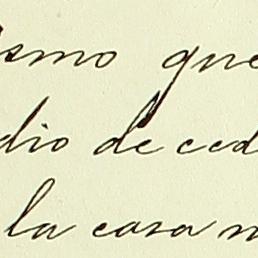 ismo que
dio de ced
la casa n